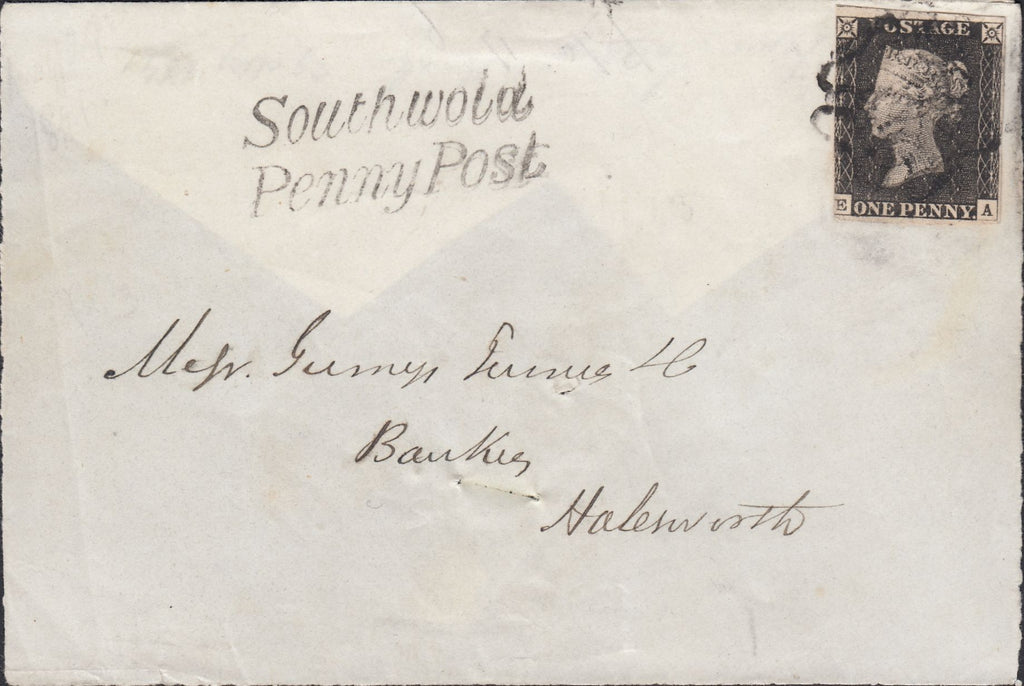 Southwold
Penny Post
POSTAGE
E ONE PENNY. A
Messr. Gurneys Turner & Co
Bankers
Halesworth